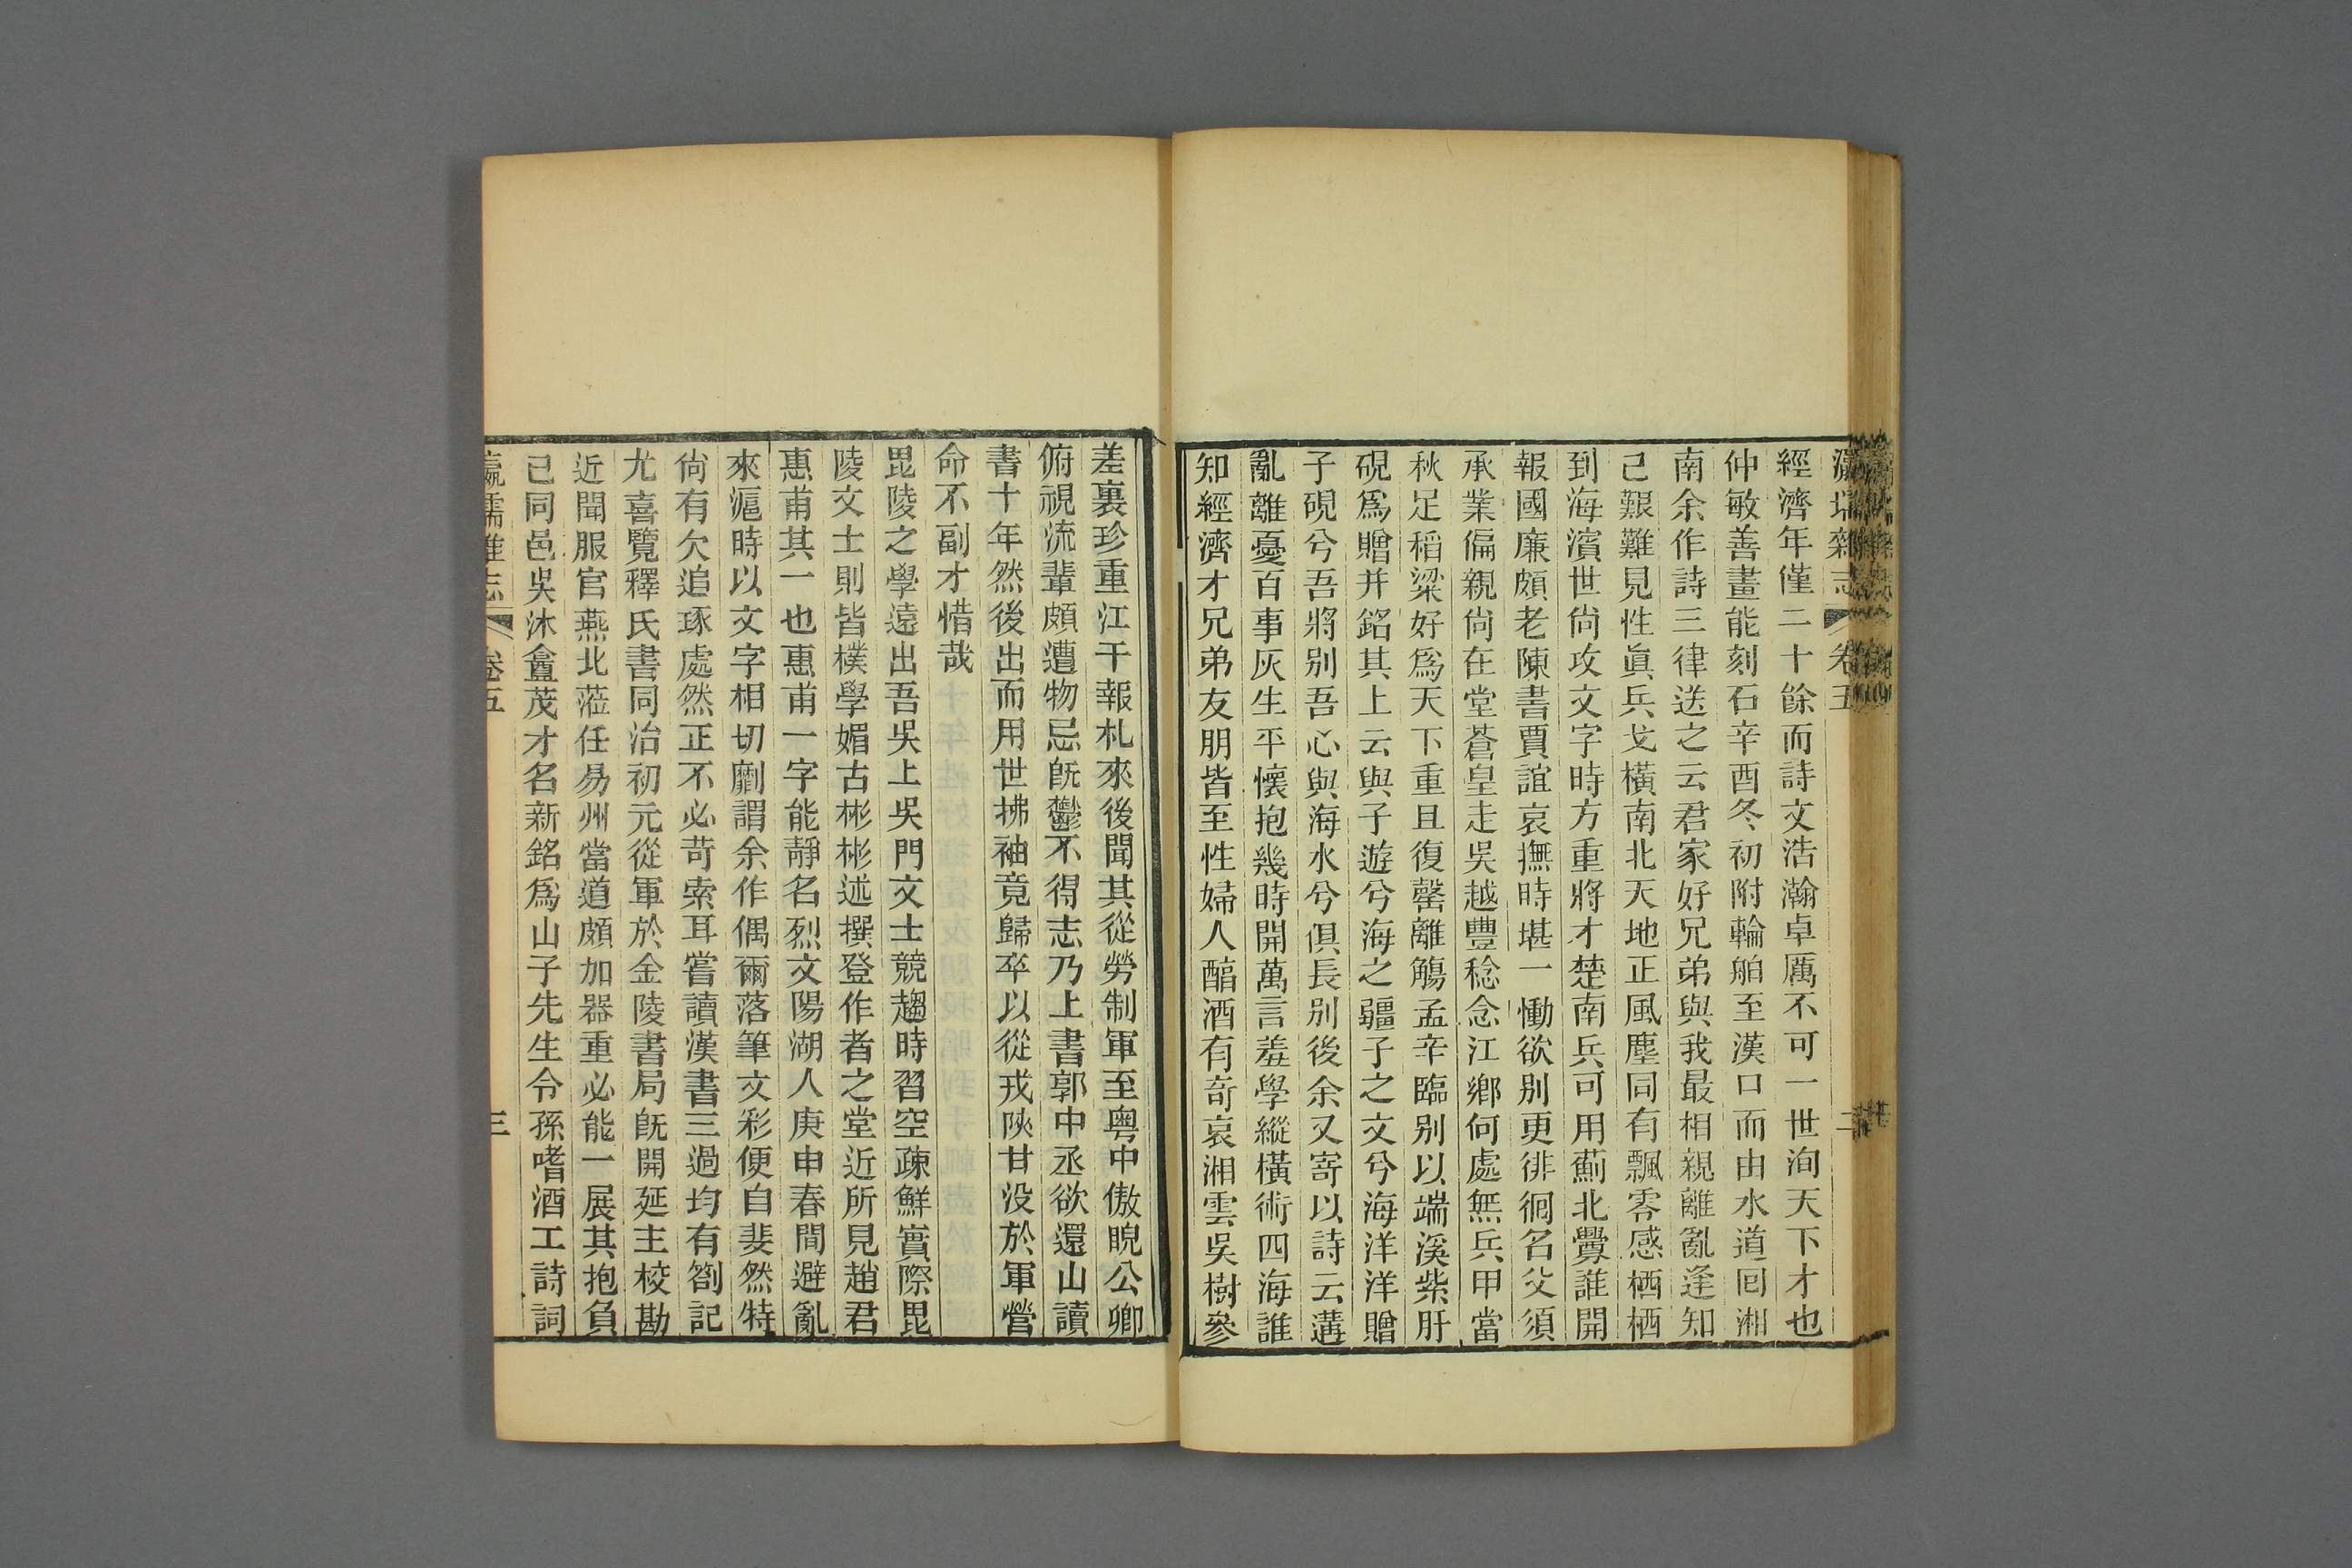 瀛壖雜志 卷五 二
經濟年僅二十餘而詩文浩瀚卓厲不可一世洵天下才也
仲敏善畫能刻石辛酉冬初附輪舶至漢口而由水道囘湘
南余作詩三律送之云君家好兄弟與我最相親離亂逢知
己艱難見性眞兵戈橫南北天地正風塵同有飄零感栖栖
到海濱世尙攻文字時方重將才楚南兵可用薊北釁誰開
報國廉頗老陳書賈誼哀撫時堪一慟欲別更徘徊名父須
承業偏親尙在堂蒼皇走吳越豐稔念江鄉何處無兵甲當
秋足稻粱好爲天下重且復罄離觴孟辛臨別以端溪紫肝
硯爲贈并銘其上云與子遊兮海之疆子之文兮海洋洋贈
子硯兮吾將別吾心與海水兮俱長別後余又寄以詩云遘
亂離憂百事灰生平懷抱幾時開萬言羞學縱橫術四海誰
知經濟才兄弟友朋皆至性婦人醕酒有奇哀湘雲吳樹參
差裏珍重江干報札來後聞其從勞制軍至粵中傲睨公卿
俯視流輩頗遭物忌旣鬱不得志乃上書郭中丞欲還山讀
書十年然後出而用世拂袖竟歸卒以從戎陝甘没於軍營
命不副才惜哉
毘陵之學遠出吾吳上吳門文士競趨時習空疎鮮實際毘
陵文士則皆樸學媚古彬彬述撰登作者之堂近所見趙君
惠甫其一也惠甫一字能靜名烈文陽湖人庚申春間避亂
來滬時以文字相切劘謂余作偶爾落筆文彩便自斐然特
尙有欠追琢處然正不必苛索耳嘗讀漢書三過均有劄記
尤喜覽釋氏書同治初元從軍於金陵書局旣開延主校勘
近聞服官燕北蒞任易州當道頗加器重必能一展其抱負
已同邑吳沐盦茂才名新銘爲山子先生令孫嗜酒工詩詞
瀛壖雜志 卷五 三